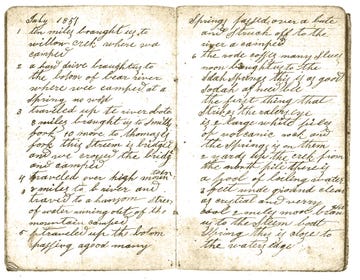 July 1857
1 ten miles brought us to
willow creek where we
camped
2 a hard drive braught us to
the botom of bear river
where wee camped at a
Spring no wod
3 traveled up the river to
8 miles braught us to Smiths
fork 10 move to thomas's
fork this Stream is bridged
and wee crosed the bridge
and camped
4 traveled over high moun
tains
8 miles to b river and
traved to a hansom Stream
of water runing out of the
mountain camped
5 traveled up the botom
passing agood many
Springs passed over a bute
and Struck off to the
river a camped
6 the rode coffes many Slues
noon braught us to the
Soda Springs this is as good
Sodah as need bee
the first thing that
Strikes the eye
is 2 large white piles
of volcanic rock and
the Springs is on them
2 yards up the creek from
the is there is
a pool of boiling water
2 feet unde ground clear
as cristial and verry
cool 2 miles moor braut
us to the Steem boat
Spring this is close to
the waters edge